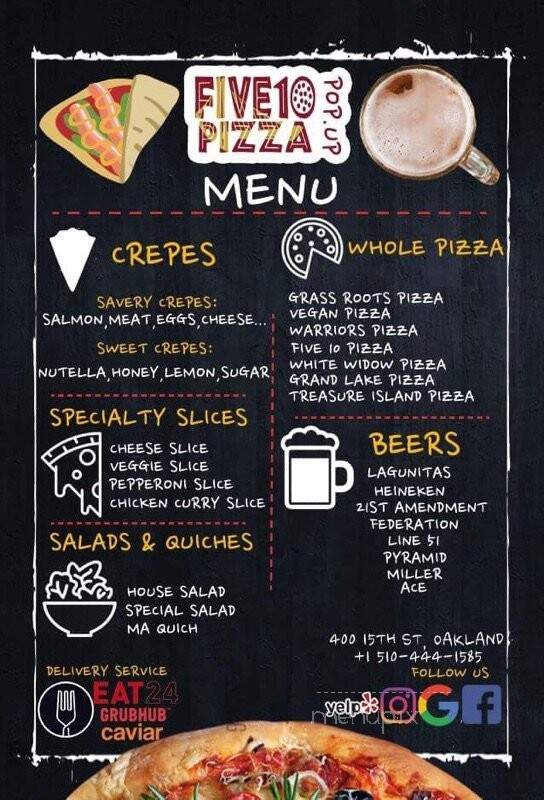 FIVE10
PIZZA
POP.UP
MENU
CREPES
SAVERY CREPES:
SALMON,MEAT,EGGS,CHEESE...
SWEET CREPES:
NUTELLA,HONEY,LEMON,SUGAR
SPECIALTY SLICES
CHEESE SLICE
VEGGIE SLICE
PEPPERONI SLICE
CHICKEN CURRY SLICE
SALADS & QUICHES
HOUSE SALAD
SPECIAL SALAD
MA QUICH
DELIVERY SERVICE
EAT24
GRUBHUB
caviar
WHOLE PIZZA
GRASS ROOTS PIZZA
VEGAN PIZZA
WARRIORS PIZZA
FIVE 10 PIZZA
WHITE WIDOW PIZZA
GRAND LAKE PIZZA
TREASURE ISLAND PIZZA
BEERS
LAGUNITAS
HEINEKEN
21ST AMENDMENT
FEDERATION
LINE 51
PYRAMID
MILLER
ACE
400 15TH ST, OAKLAND
+1 510-444-1585
FOLLOW US
yelp
menupix